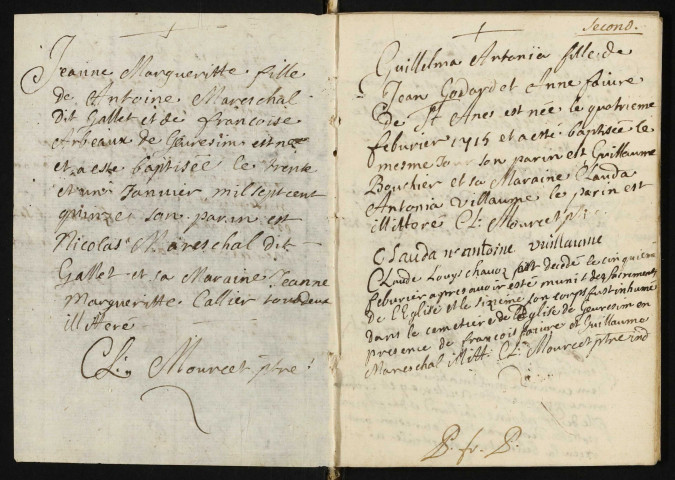 Jeanne Margueritte fille
de Antoine Mareschal
dit Gallet et de françoise
Arbeaux de Geuresin est née
et a esté baptisée le trente
et un Janvier mil sept cent
quinze son parin est
Nicolas Mareschal dit
Gallet et sa Maraine Jeanne
Margueritte Callier tous deux
illitteré
Cl. Mourcet ptre
Second.
Guillelma Antonia fille de
Jean Godard et Anne faivre
De St Anes est née le quatrieme
feburier 1715 et a esté baptisée le
mesme Jour son parin est Guillaume
Bouchier et sa Maraine Clauda
Antonia Villaume le parin est
illitteré Cl. Mourcet p.
Clauda antoine vuillaume
Claude Louys chauoz est decedé le cinquieme
feburier apres avoir esté munit des sacrements
de l'Eglise et le sizeime son corps fust inhumé
dans le cemetiere de l'Eglise de Geuresin en
presence de françois faivre et Guillaume
Mareschal illitt. Cl. Mourcet ptre ind
P. fr. P.